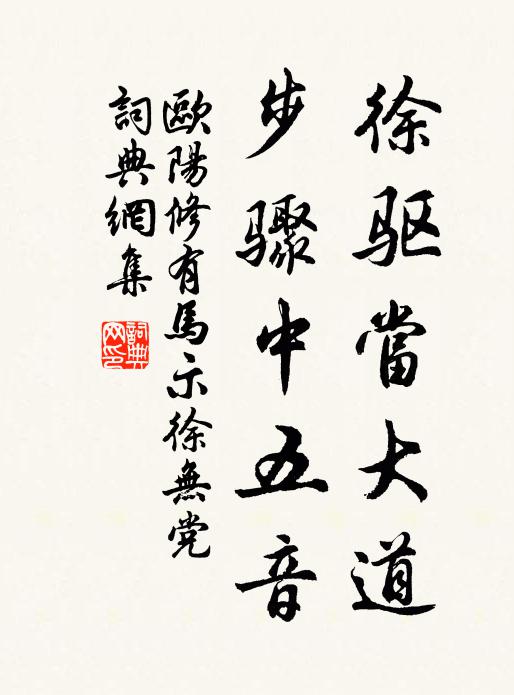 徐驱當大道
步驟中五音
歐陽修有馬示徐無党
詞典網集
詞典網印